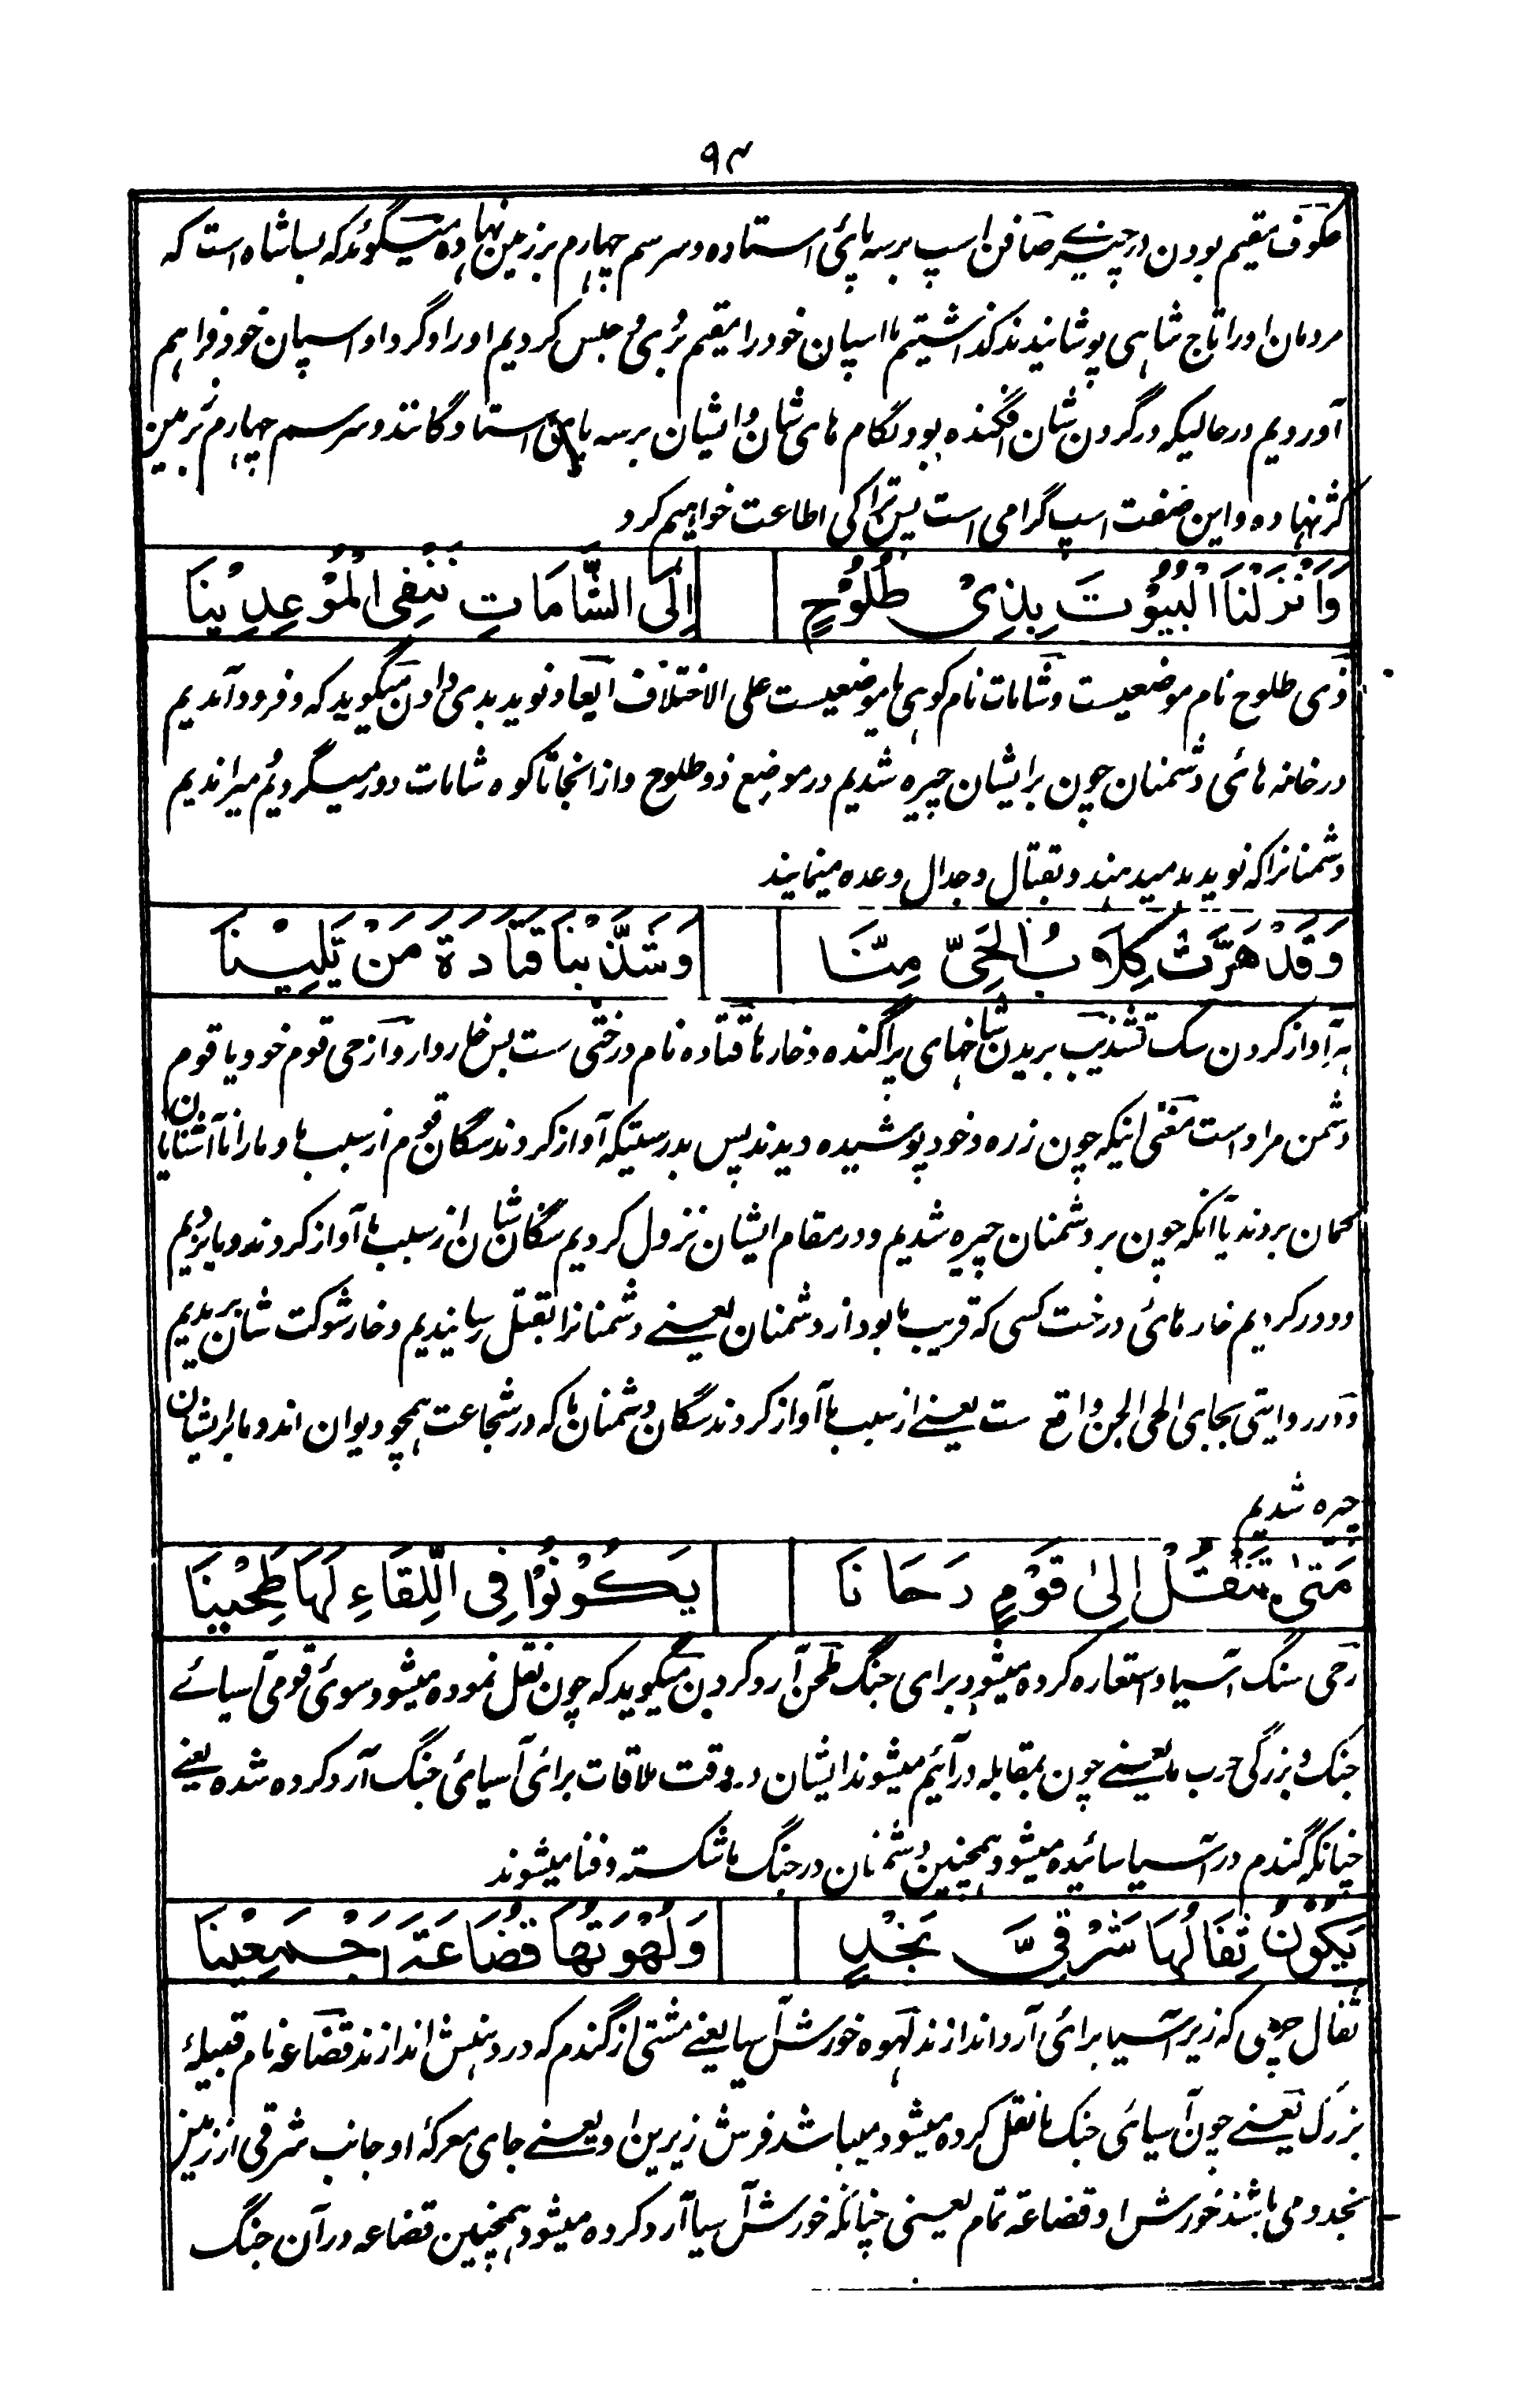 ۹۴
عکوف مقیم بودن در چیزے صافن اسپ بر سه پائی استاده و سر سم چهارم بر زمین نهاده میگوئد که بسا شاه است که
مردمان او را تاج شاهی پوشانیدند گذاشتیم ما اسپان خود را مقیم بر وی و حبس کردیم او را و گرد او اسپان خود فراهم
آوردیم در حالیکه در گردن شان افگنده بود لگام های شان و ایشان بر سه پای استادگانند و سر سم چهارم بر زمین
کژ نهاده و این صفت اسپ گرامی است پس ترا کی اطاعت خواهیم کرد
وَاَنْزَلْنَا الْبُیُوْتَ بِذِیْ طُلُوْحٍ اِلَی الشَّامَاتِ نَنْفِی الْمُوْعِدِیْنَا
ذی طلوح نام موضعیست و شامات نام کوهی یا موضعیست علی الاختلاف ایعاد نوید بدی دادن میگوید که و فرود آمدیم
در خانه هائی دشمنان چون بر ایشان چیره شدیم در موضع ذو طلوح و از انجا تا کوه شامات دور میگردیم میراندیم
دشمنانرا که نوید بد میدهند و بقتال و جدال وعده مینمایند
وَقَدْ هَرَّتْ کِلَابُ الْحَیِّ مِنَّا وَشَذَّبْنَا قَتَادَةَ مَنْ یَّلِیْنَا
هر آواز کردن سگ تشذیب بریدن شاخهای پراگنده و خارها قتاده نام درختی ست بس خاردار و از حی قوم خود یا قوم
دشمن مراد است معنی اینکه چون زره و خود پوشیده دیدند پس بدرستیکه آواز کردند سگان قوم از سبب ما و ما را ناآشنایان
گمان بردند یا آنکه چون بر دشمنان چیره شدیم و در مقام ایشان نزول کردیم سگان شان از سبب ما آواز کردند و ما بریدیم
و دور کردیم خار هائی درخت کسی که قریب ما بود از دشمنان یعنے دشمنانرا بقتل رسانیدیم و خار شوکت شان بریدیم
و در روایتی بجای الحی الجن واقع ست یعنے از سبب ما آواز کردند سگان دشمنان ما که در شجاعت همچو دیوان اند و ما بر ایشان
چیره شدیم
مَتٰی نَنْقُلْ اِلٰی قَوْمٍ رَحَانَا یَکُوْنُوْا فِی اللِّقَاءِ لَهَا طَحِیْنَا
رحی سنگ آسیا و استعاره کرده میشود برای جنگ طحن آرد کردن میگوید که چون نقل نموده میشود سوئ قومی آسیائے
جنگ و بزرگی حرب ما یعنے چون بمقابله درآئیم میشوند ایشان در وقت ملاقات برائی آسیائی جنگ آرد کرده شده یعنے
چنانکه گندم در آسیا سائیده میشود همچنین دشمنان در جنگ ما شکسته و فنا میشوند
یَکُوْنُ ثِفَالُهَا شَرْقِیَّ نَجْدٍ وَلُهْوَتُهَا قُضَاعَةَ اَجْمَعِیْنَا
ثفال چرمی که زیر آسیا برائی آرد اندازند لهوه خورش آسیا یعنے مشتی از گندم که در دهنش اندازند قضاعه نام قبیلۀ
بزرگ یعنے چون آسیائی جنگ ما نقل کرده میشود میباشد فرش زیرین او یعنے جای معرکۀ او جانب شرقی از زمین
نجد و می باشد خورش او قضاعه تمام یعنی چنانکه خورش آسیا آرد کرده میشود همچنین قضاعه در آن جنگ